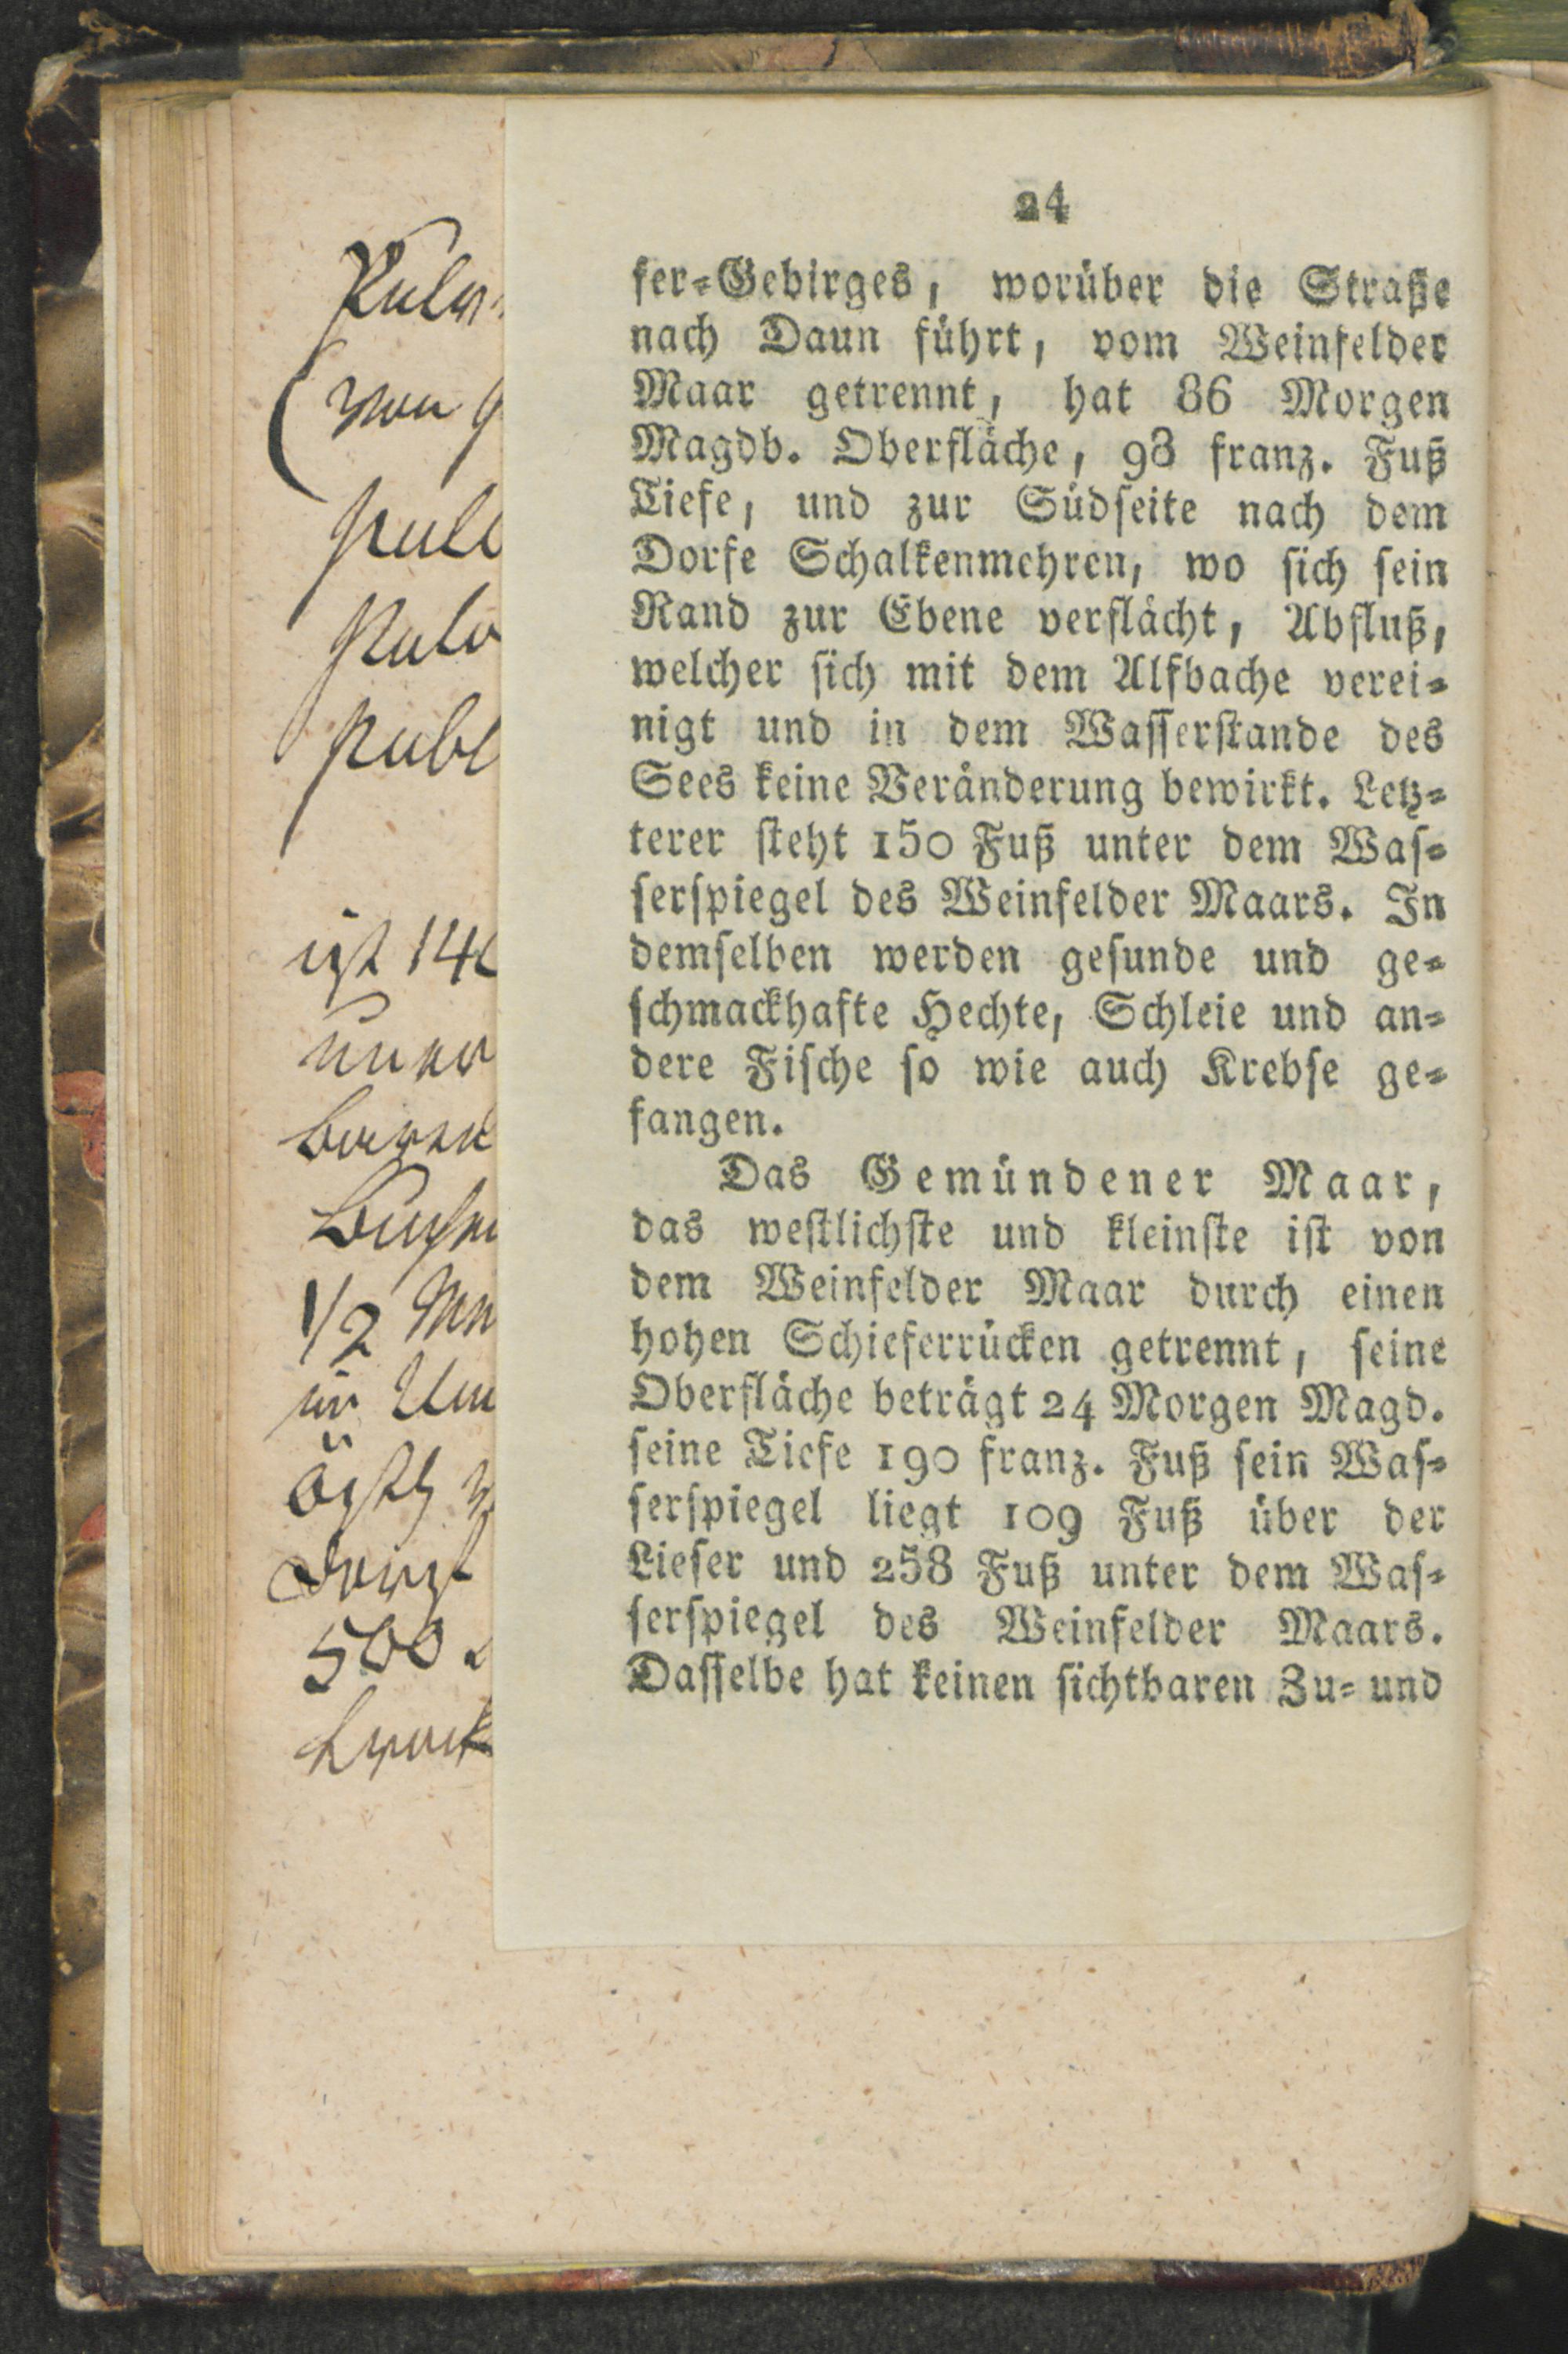 24
fer-Gebirges, worüber die Straße
nach Daun führt, vom Weinfelder
Maar getrennt, hat 86 Morgen
Magdb. Oberfläche, 98 franz. Fuß
Tiefe, und zur Südseite nach dem
Dorfe Schalkenmehren, wo sich sein
Rand zur Ebene verflächt, Abfluß,
welcher sich mit dem Alfbache verei-
nigt und in dem Wasserstande des
Sees keine Veränderung bewirkt. Letz-
terer steht 150 Fuß unter dem Was-
serspiegel des Weinfelder Maars. In
demselben werden gesunde und ge-
schmackhafte Hechte, Schleie und an-
dere Fische so wie auch Krebse ge-
fangen.
Das Gemündener Maar,
das westlichste und kleinste ist von
dem Weinfelder Maar durch einen
hohen Schieferrücken getrennt, seine
Oberfläche beträgt 24 Morgen Magd.
seine Tiefe 190 franz. Fuß sein Was-
serspiegel liegt 109 Fuß über der
Lieser und 258 Fuß unter dem Was-
serspiegel des Weinfelder Maars.
Dasselbe hat keinen sichtbaren Zu- und
ist 14
1/2
500